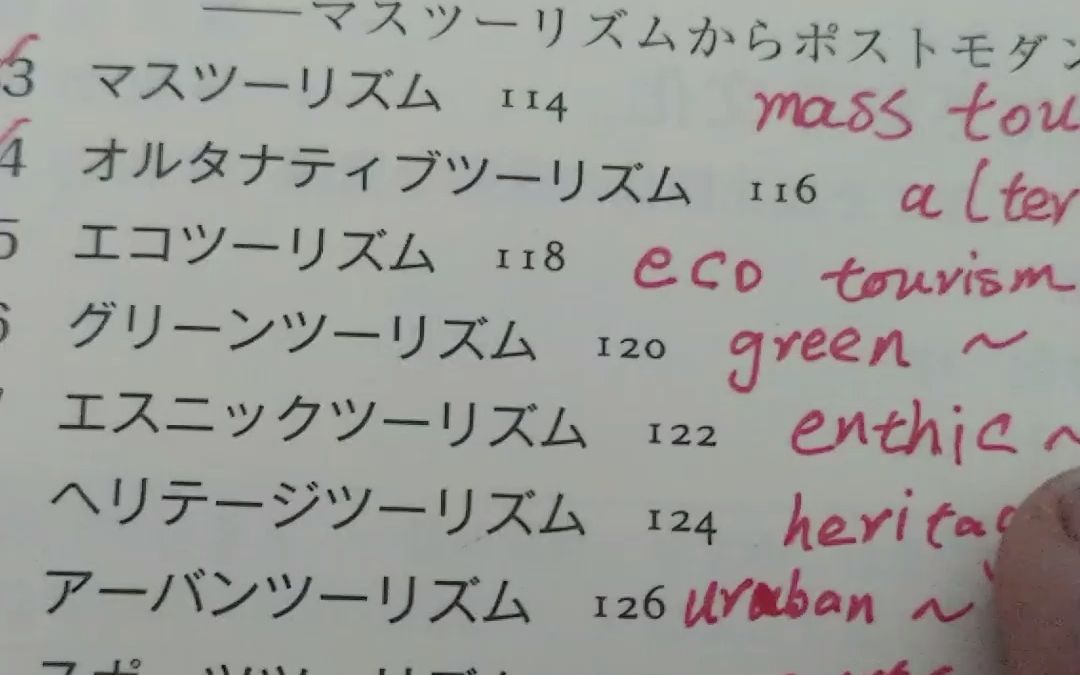 ──マスツーリズムからポストモダン
3 マスツーリズム 114 mass tou
4 オルタナティブツーリズム 116 alter
5 エコツーリズム 118 eco tourism
6 グリーンツーリズム 120 green ~
エスニックツーリズム 122 enthic ~
ヘリテージツーリズム 124 heritag
アーバンツーリズム 126 uraban ~
スポーツツーリズム